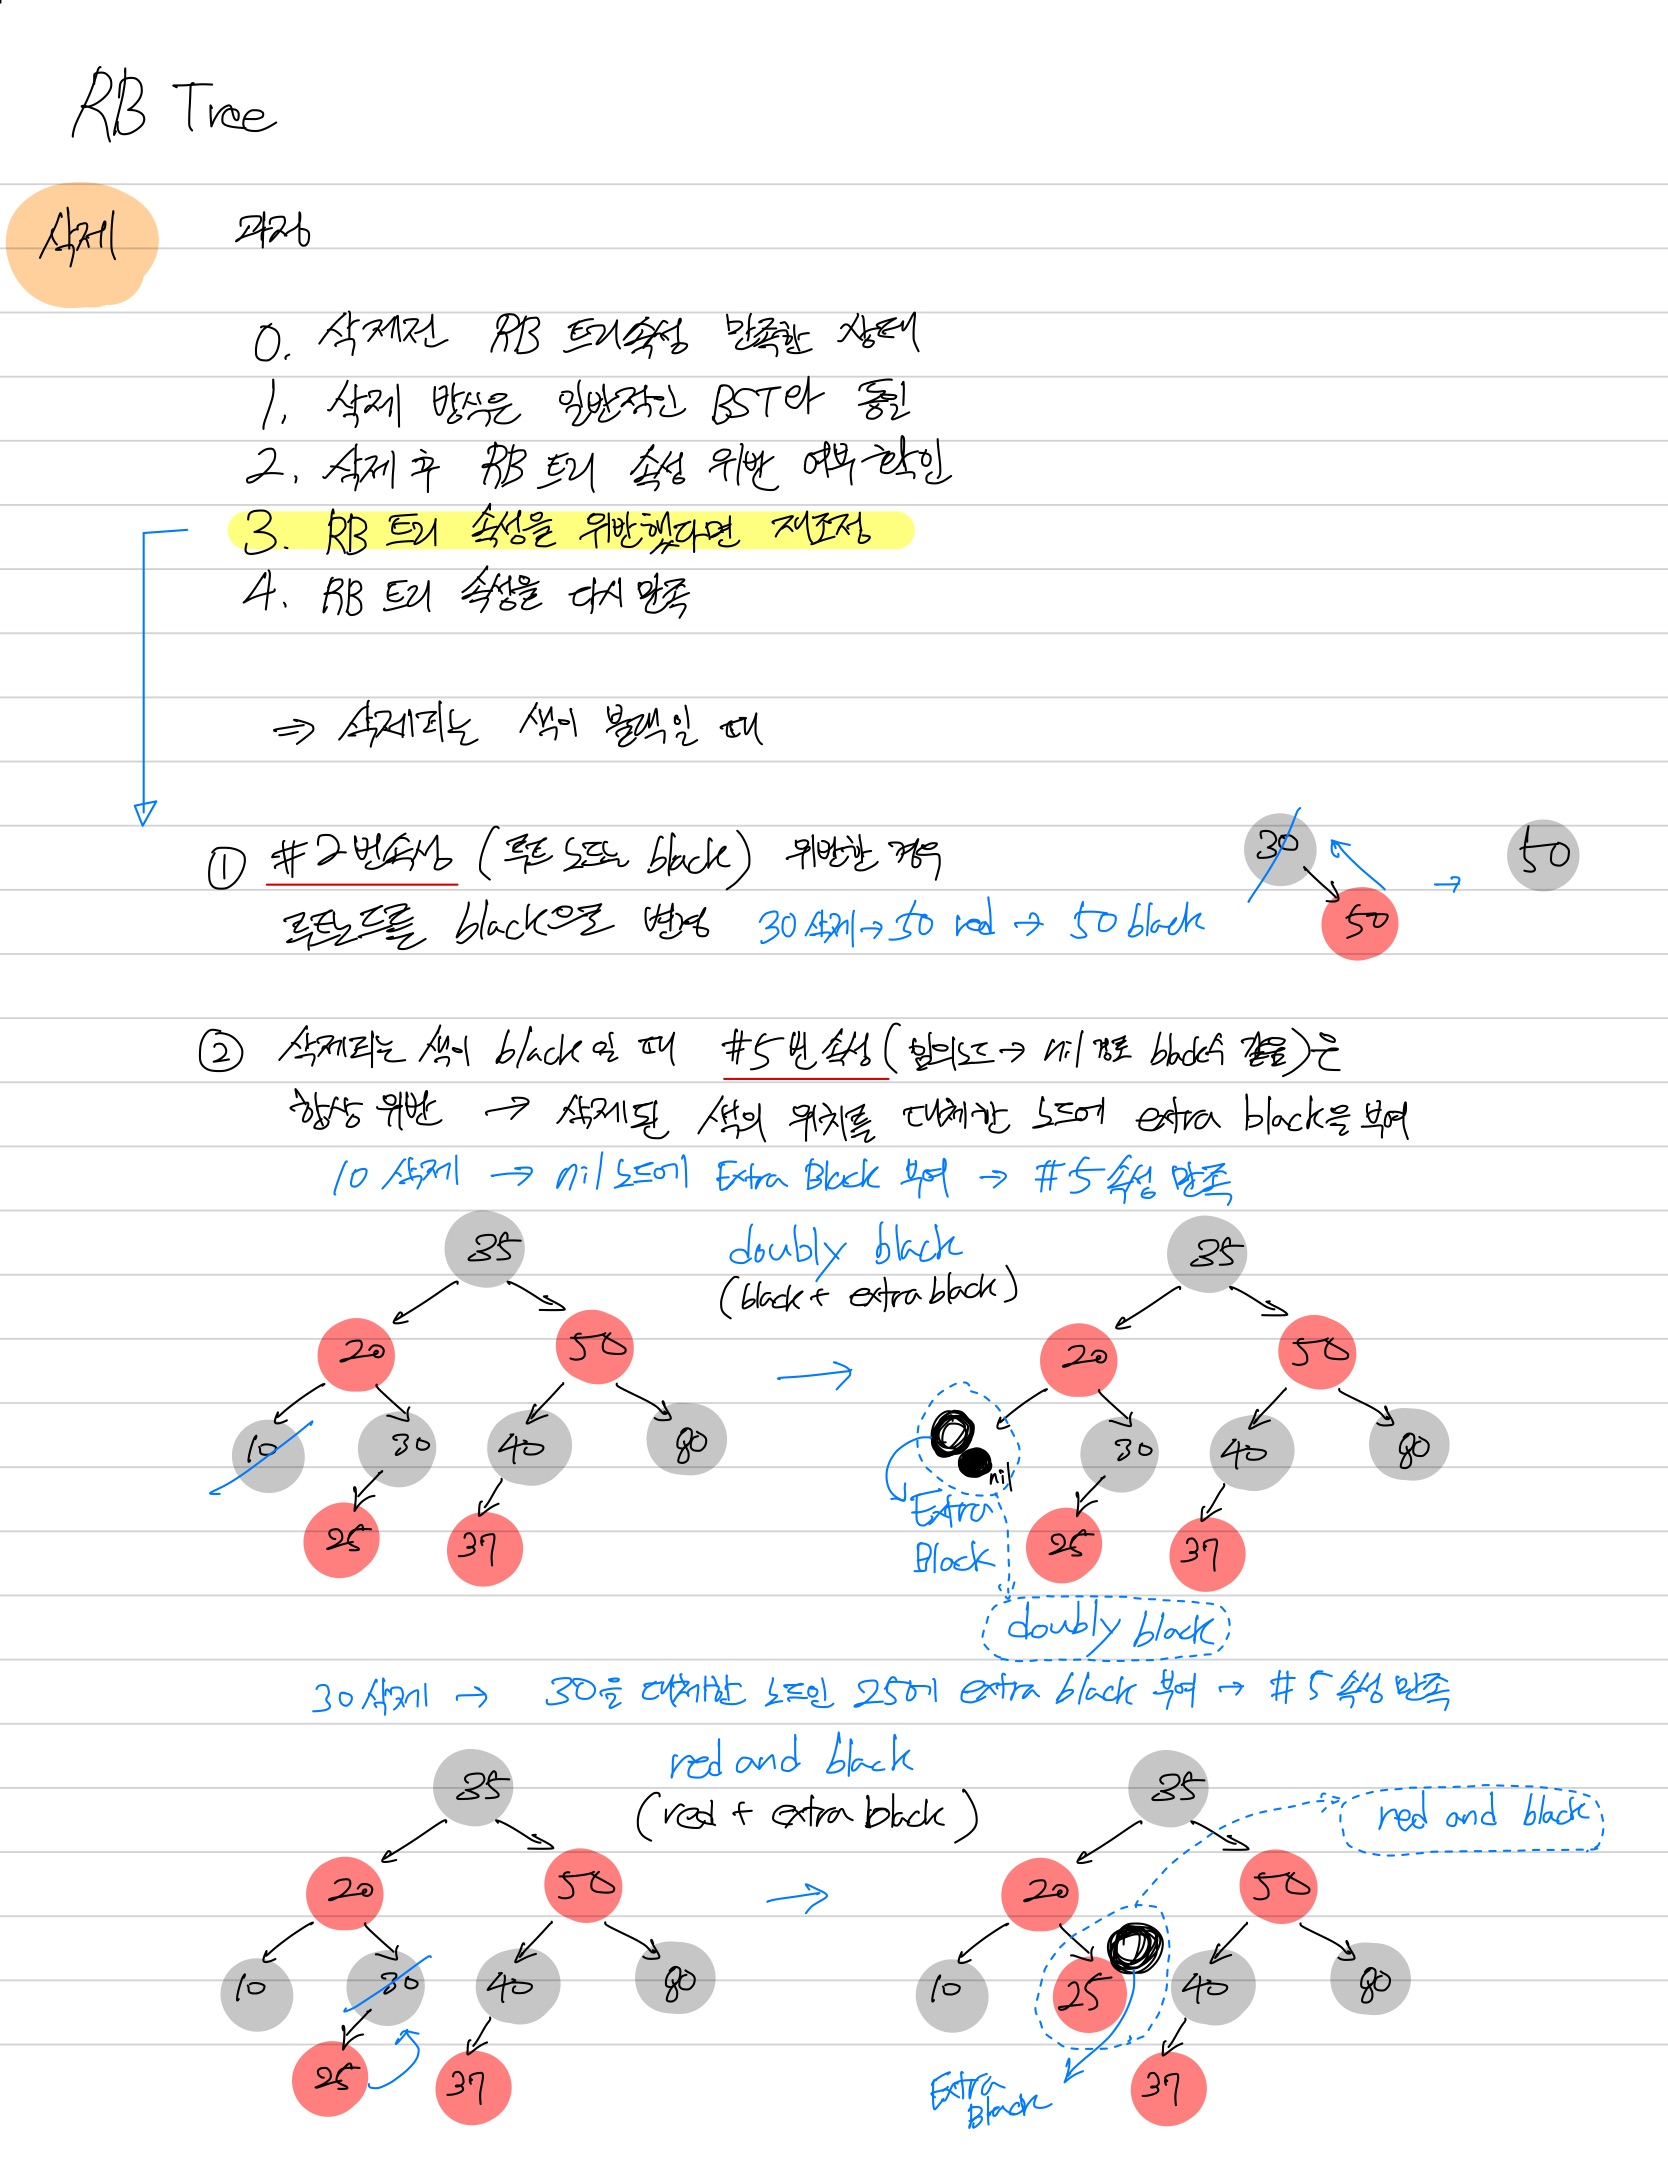 RB Tree
삭제
과정
0. 삭제전 RB 트리속성 만족한 상태
1. 삭제 방식은 일반적인 BST와 동일
2. 삭제 후 RB 트리 속성 위반 여부 확인
3. RB 트리 속성을 위반했다면 재조정
4. RB 트리 속성을 다시 만족
⇒ 삭제되는 색이 블랙일 때
① #2번속성 (루트 노드는 black) 위반한 경우
루트노드를 black으로 변경 30 삭제 → 50 red → 50 black
30
50
→
50
② 삭제되는 색이 black일 때 #5번 속성(임의노드 → nil 경로 black수 같음)은
항상 위반 → 삭제된 색의 위치를 대체한 노드에 extra black을 부여
10 삭제 → nil노드에 Extra Black 부여 → #5 속성 만족
35
20 50
10 30 40 80
25 37
doubly black
(black + extra black)
→
35
20 50
nil 30 40 80
25 37
Extra
Black
doubly black
30 삭제 → 30을 대체한 노드인 25에 extra black 부여 → #5 속성 만족
35
20 50
10 30 40 80
25 37
red and black
(red + extra black)
→
35
red and black
20 50
10 25 40 80
37
Extra
Black